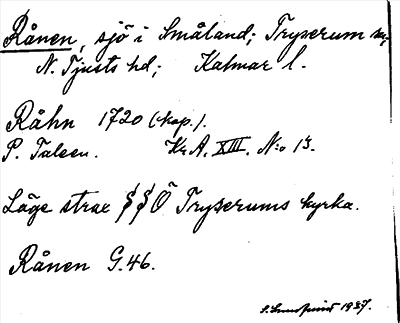 Rånen, sjö i Småland; Tryserum sn,
N. Tjusts hd; Kalmar l.
Råhn 1720 (kop.).
P. Taleen. Kr A. XIII. N:o 13.
Läge strax SSÖ Tryserums kyrka.
Rånen G.46.
1937.